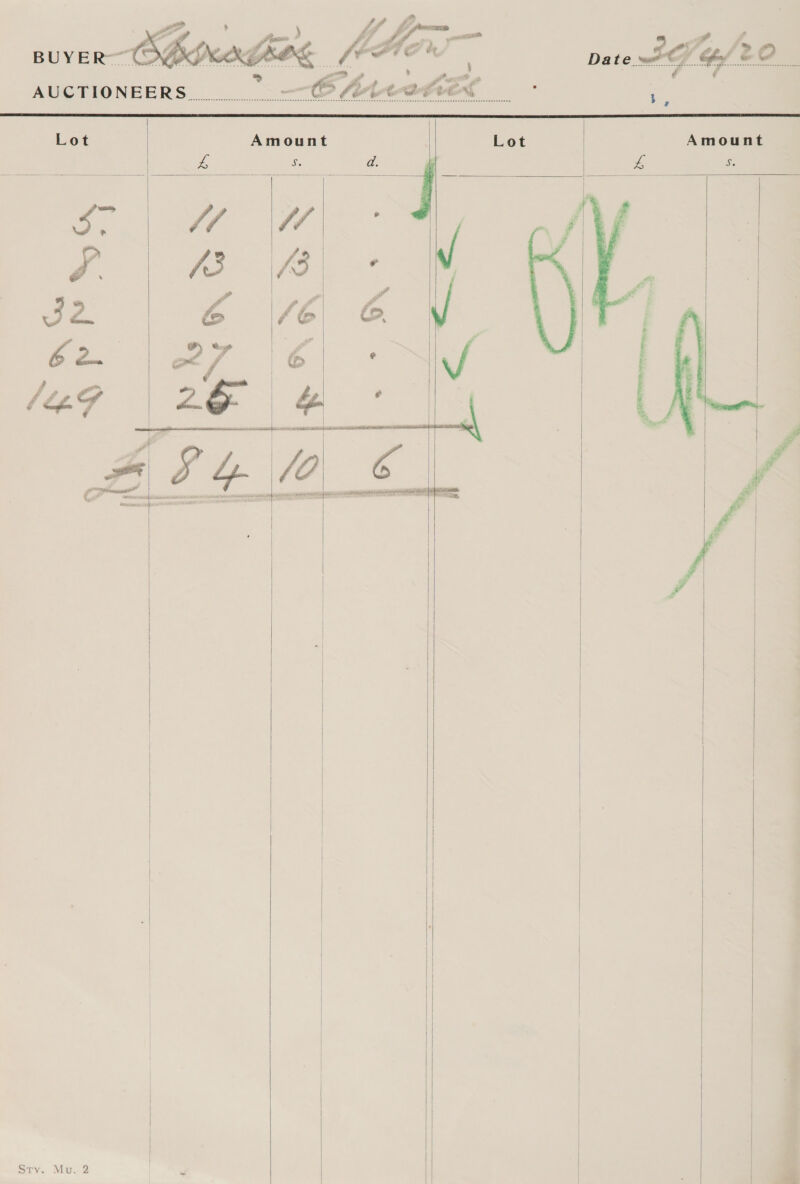 BUYER Date 30/4/20
AUCTIONEERS Christies
Lot Amount Lot Amount
£ s. d. £ s.
5. 11 11 .
8. 13 13 .
32 6 16 6.
62 27 6 .
149 25 4 .
£ 84 10 6
OK
Stv. Mu. 2